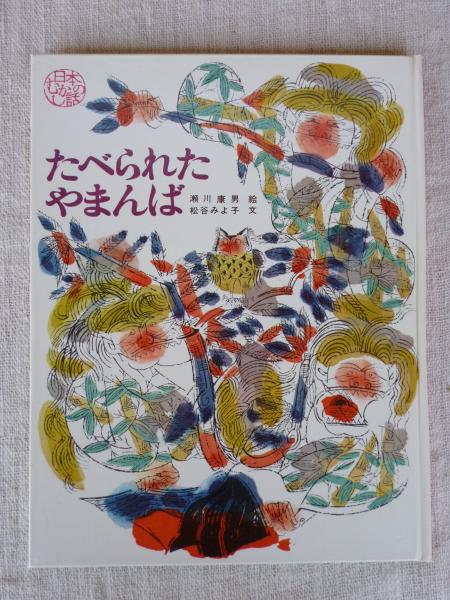 日本の
むかし話
たべられた
やまんば
瀬川康男 絵
松谷みよ子 文